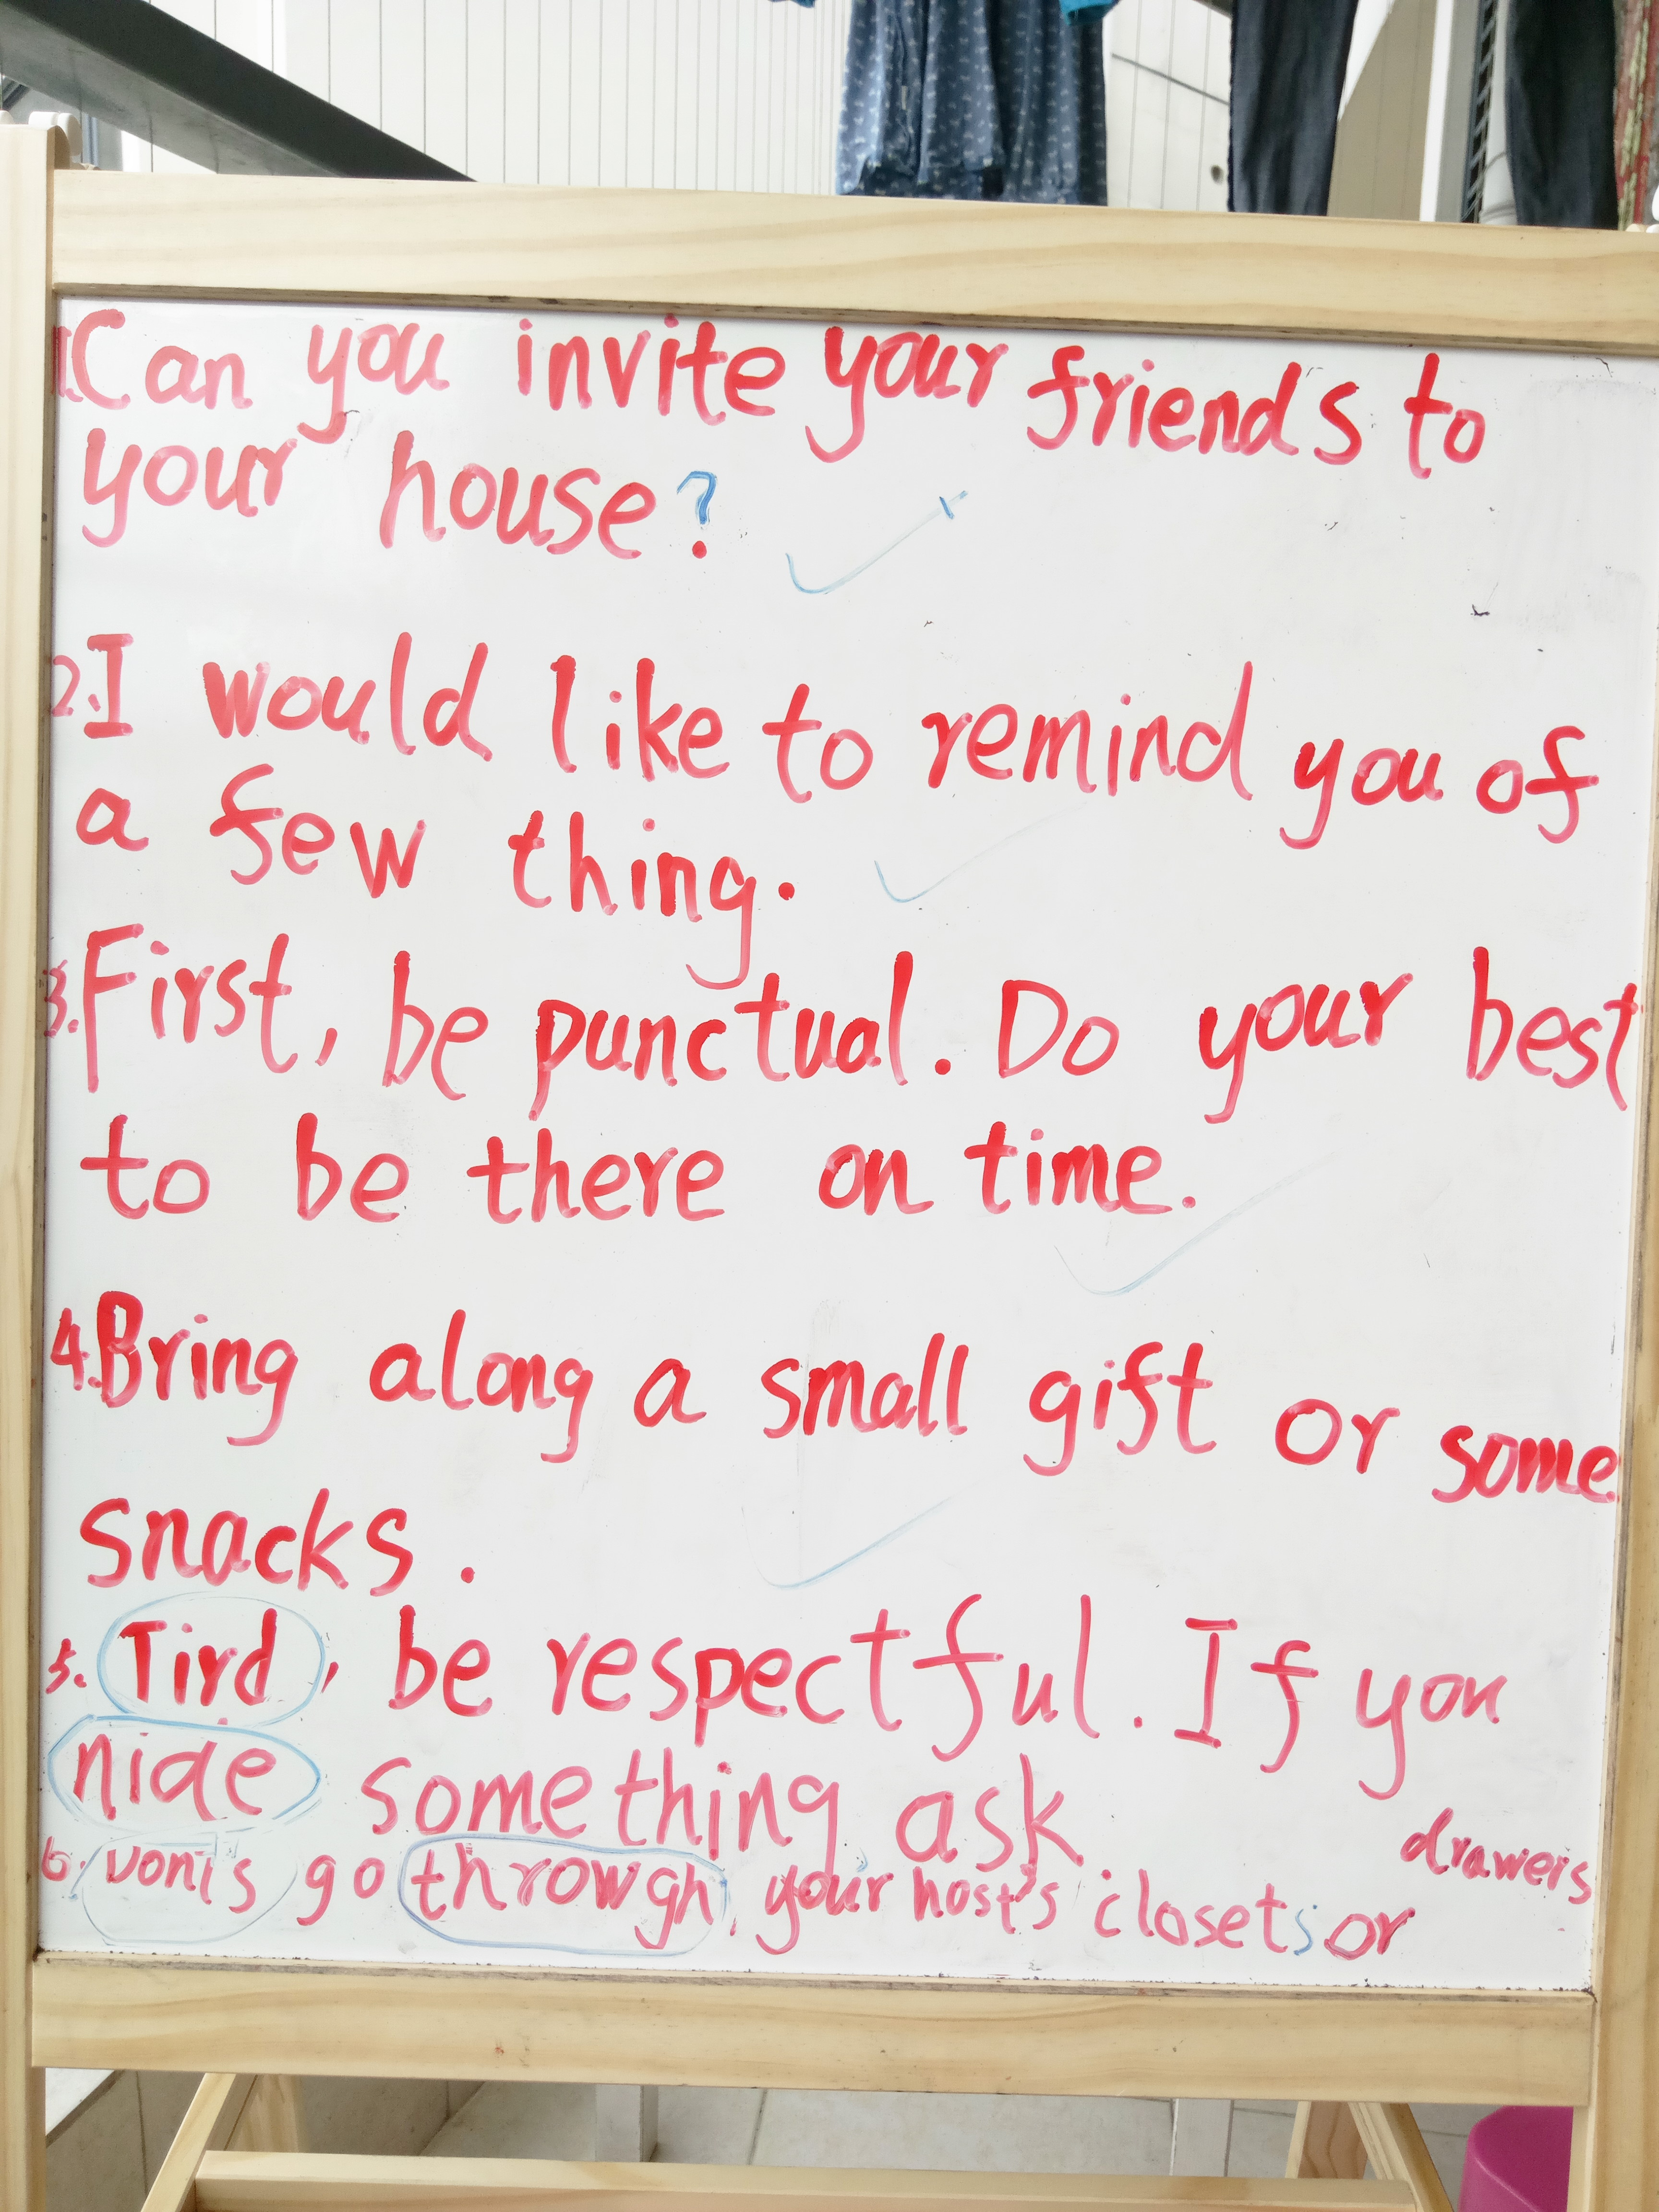 1.Can you invite your friends to
your house?
2.I would like to remind you of
a few thing.
3.First, be punctual. Do your best
to be there on time.
4.Bring along a small gift or some
snacks.
5. Tird, be respectful. If you
nide something ask
6. vont's go throwgh your host's closets or drawers